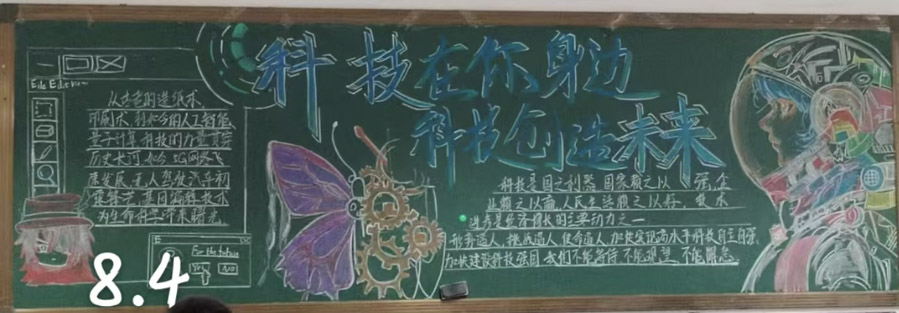 科技在你身边
科技创造未来
File Edit View
从古老的造纸术、
印刷术,到如今的人工智能、
量子计算,科技的力量贯穿
历史长河,如今5G网络飞
速发展,无人驾驶汽车初
来日
For the future
Yes
科技是国之利器,国家赖之以强,企
业赖之以赢,人民生活赖之以好。技术
进步是经济增长的主要动力之一
形势逼人,挑战逼人,使命逼人,加快实现高水平科技自立自强
加快建设科技强国,我们不能等待、不能观望、不能懈怠。
8.4